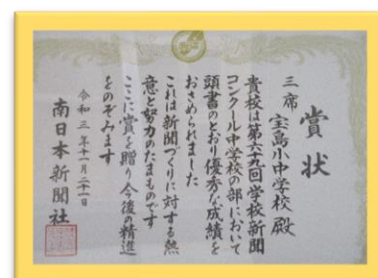 賞状
三席
宝島小中学校 殿
貴校は第六十九回学校新聞
コンクール中学校の部において
頭書のとおり優秀な成績を
おさめられました
これは新聞づくりに対する熱
意と努力のたまものです
ここに賞を贈り今後の精進
をのぞみます
令和三年十一月二十一日
南日本新聞社